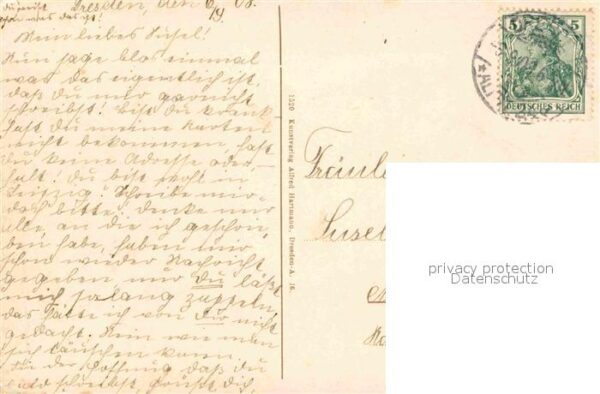 Dresden, den 6/9. 08.
Mein liebes Susel!
Nun sage blos einmal
was das eigentlich ist,
daß du mir garnicht
schreibst! Bist du krank
hast du meine Karten
nicht bekommen, hast
du keine Adresse oder
halt! du bist wohl in
Leipzig? Schreibe mir
doch bitte, denke nur
alle, an die ich geschrie-
ben habe, haben mir
schon wieder Nachricht
gegeben nur du läßt
mich so lang zappeln,
das hätte ich von dir nicht
gedacht. Nein wie man
sich täuschen kann.
In der Hoffnung daß du
bald schreibst, grüßt dich,
1520 Kunstverlag Alfred Hartmann, Dresden-A. 16.
5 5
DEUTSCHES REICH
Fräulei
Susel
privacy protection
Datenschutz